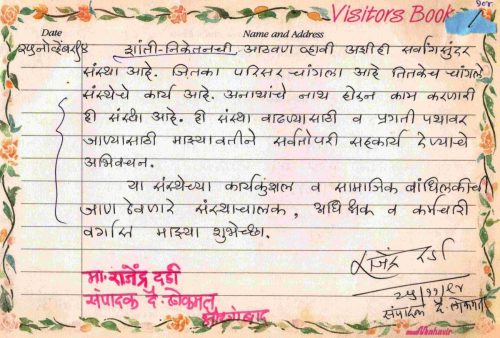 Visitors Book
Date Name and Address
शांती-निकेतनची आठवण व्हावी अशीही सर्वांगसुंदर
संस्था आहे. जितका परिसर चांगला आहे तितकेच चांगले
संस्थेचे कार्य आहे. अनाथांचे नाथ होऊन काम करणारी
ही संस्था आहे. ही संस्था वाढण्यासाठी व प्रगती पथावर
जाण्यासाठी माझ्यावतीने सर्वतोपरी सहकार्य देण्याचे
अभिवचन.
या संस्थेच्या कार्यकुशल व सामाजिक बांधिलकीची
जाण ठेवणारे संस्थाचालक, अधिक्षक व कर्मचारी
वर्गास माझ्या शुभेच्छा.
राजेंद्र दर्डा
२५/११/९४
संपादक दै. लोकमत
मा. राजेंद्र दर्डी
संपादक दै. लोकमत
औरंगाबाद
Mahavir